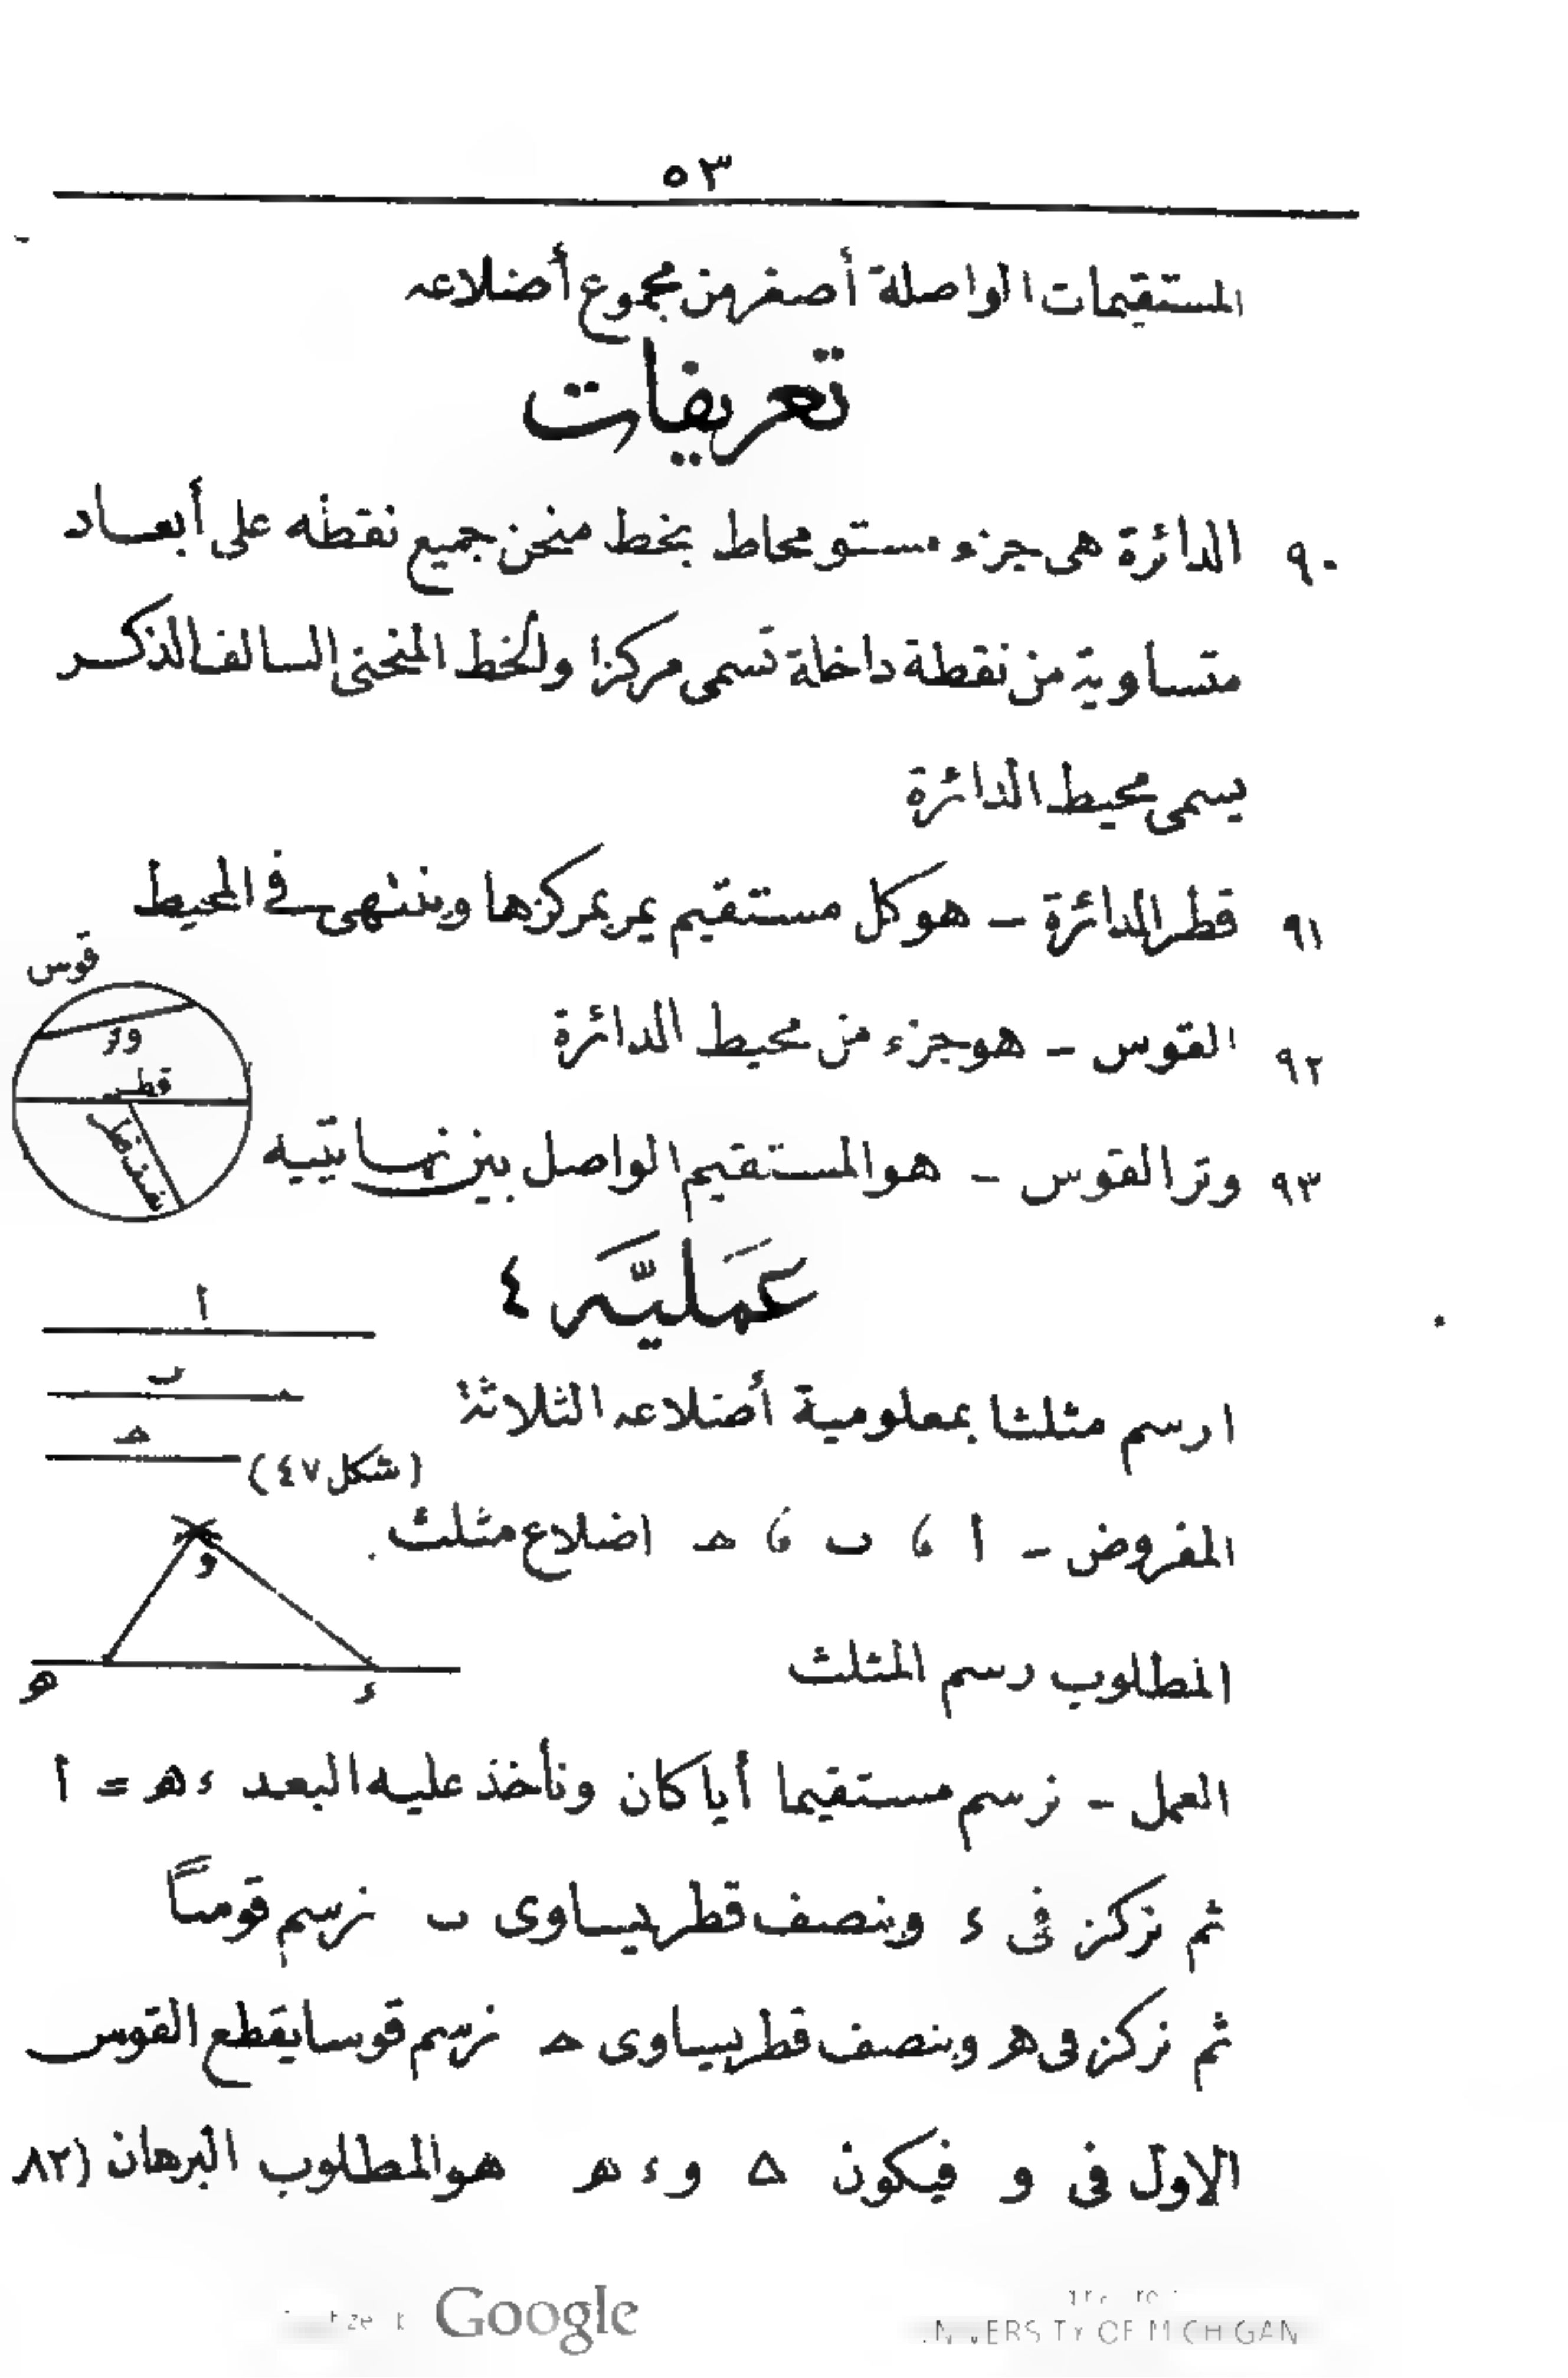 ٥٣
المستقيمات الواصلة أصغر من مجموع أضلاعه
تعريفات
٩٠ الدائرة هى جزء مستو محاط بخط منحن جميع نقطه على أبعاد
متساوية من نقطة داخلة تسمى مركزا والخط المنحنى السالف الذكر
يسمى محيط الدائرة
٩١ قطر الدائرة – هو كل مستقيم يمر بمركزها وينتهى فى المحيط
قوس
وتر
قطر
نصف قطر
٩٢ القوس – هو جزء من محيط الدائرة
٩٣ وتر القوس – هو المستقيم الواصل بين نهايتيه
عَمَليَّة ٤
أ
ب
ح
ارسم مثلثا بمعلومية أضلاعه الثلاثة
(شكل ٤٧)
المفروض – أ ، ب ، ح اضلاع مثلث
و
المطلوب رسم المثلث
ه ء
العمل – نرسم مستقيما أيا كان ونأخذ عليه البعد ء ه = أ
ثم نركز فى ء وبنصف قطر يساوى ب نرسم قوساً
ثم نركز فى ه وبنصف قطر يساوى ح نرسم قوسا يقطع القوس
الاول فى و فيكون △ و ء ه هو المطلوب البرهان (٨٢
Google
UNIVERSITY OF MICHIGAN